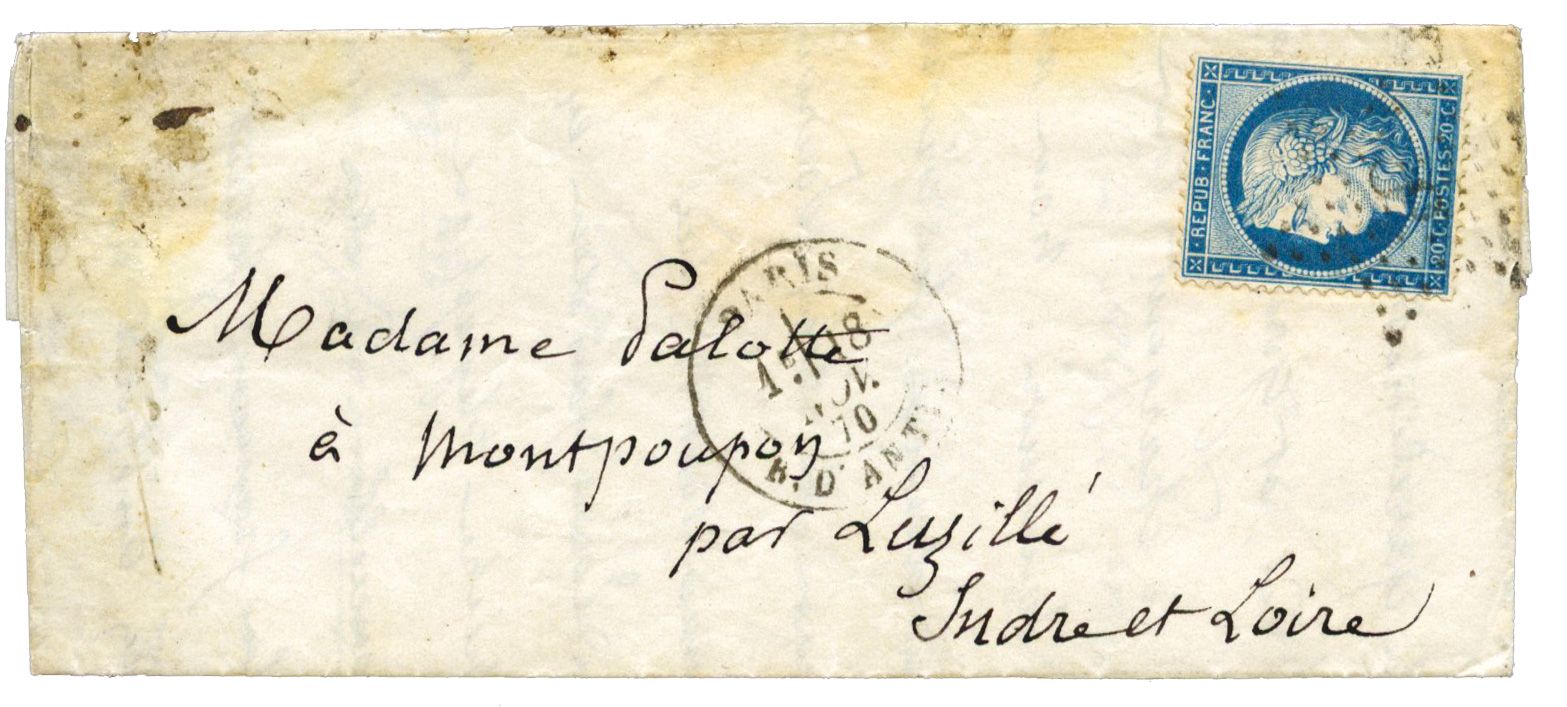 REPUB · FRANC ·
20 · C · POSTES · 20 · C ·
PARIS
18
NOV.
70
R. D'ANTIN
Madame Palotte
à Montpoupon
par Luzillé
Indre et Loire